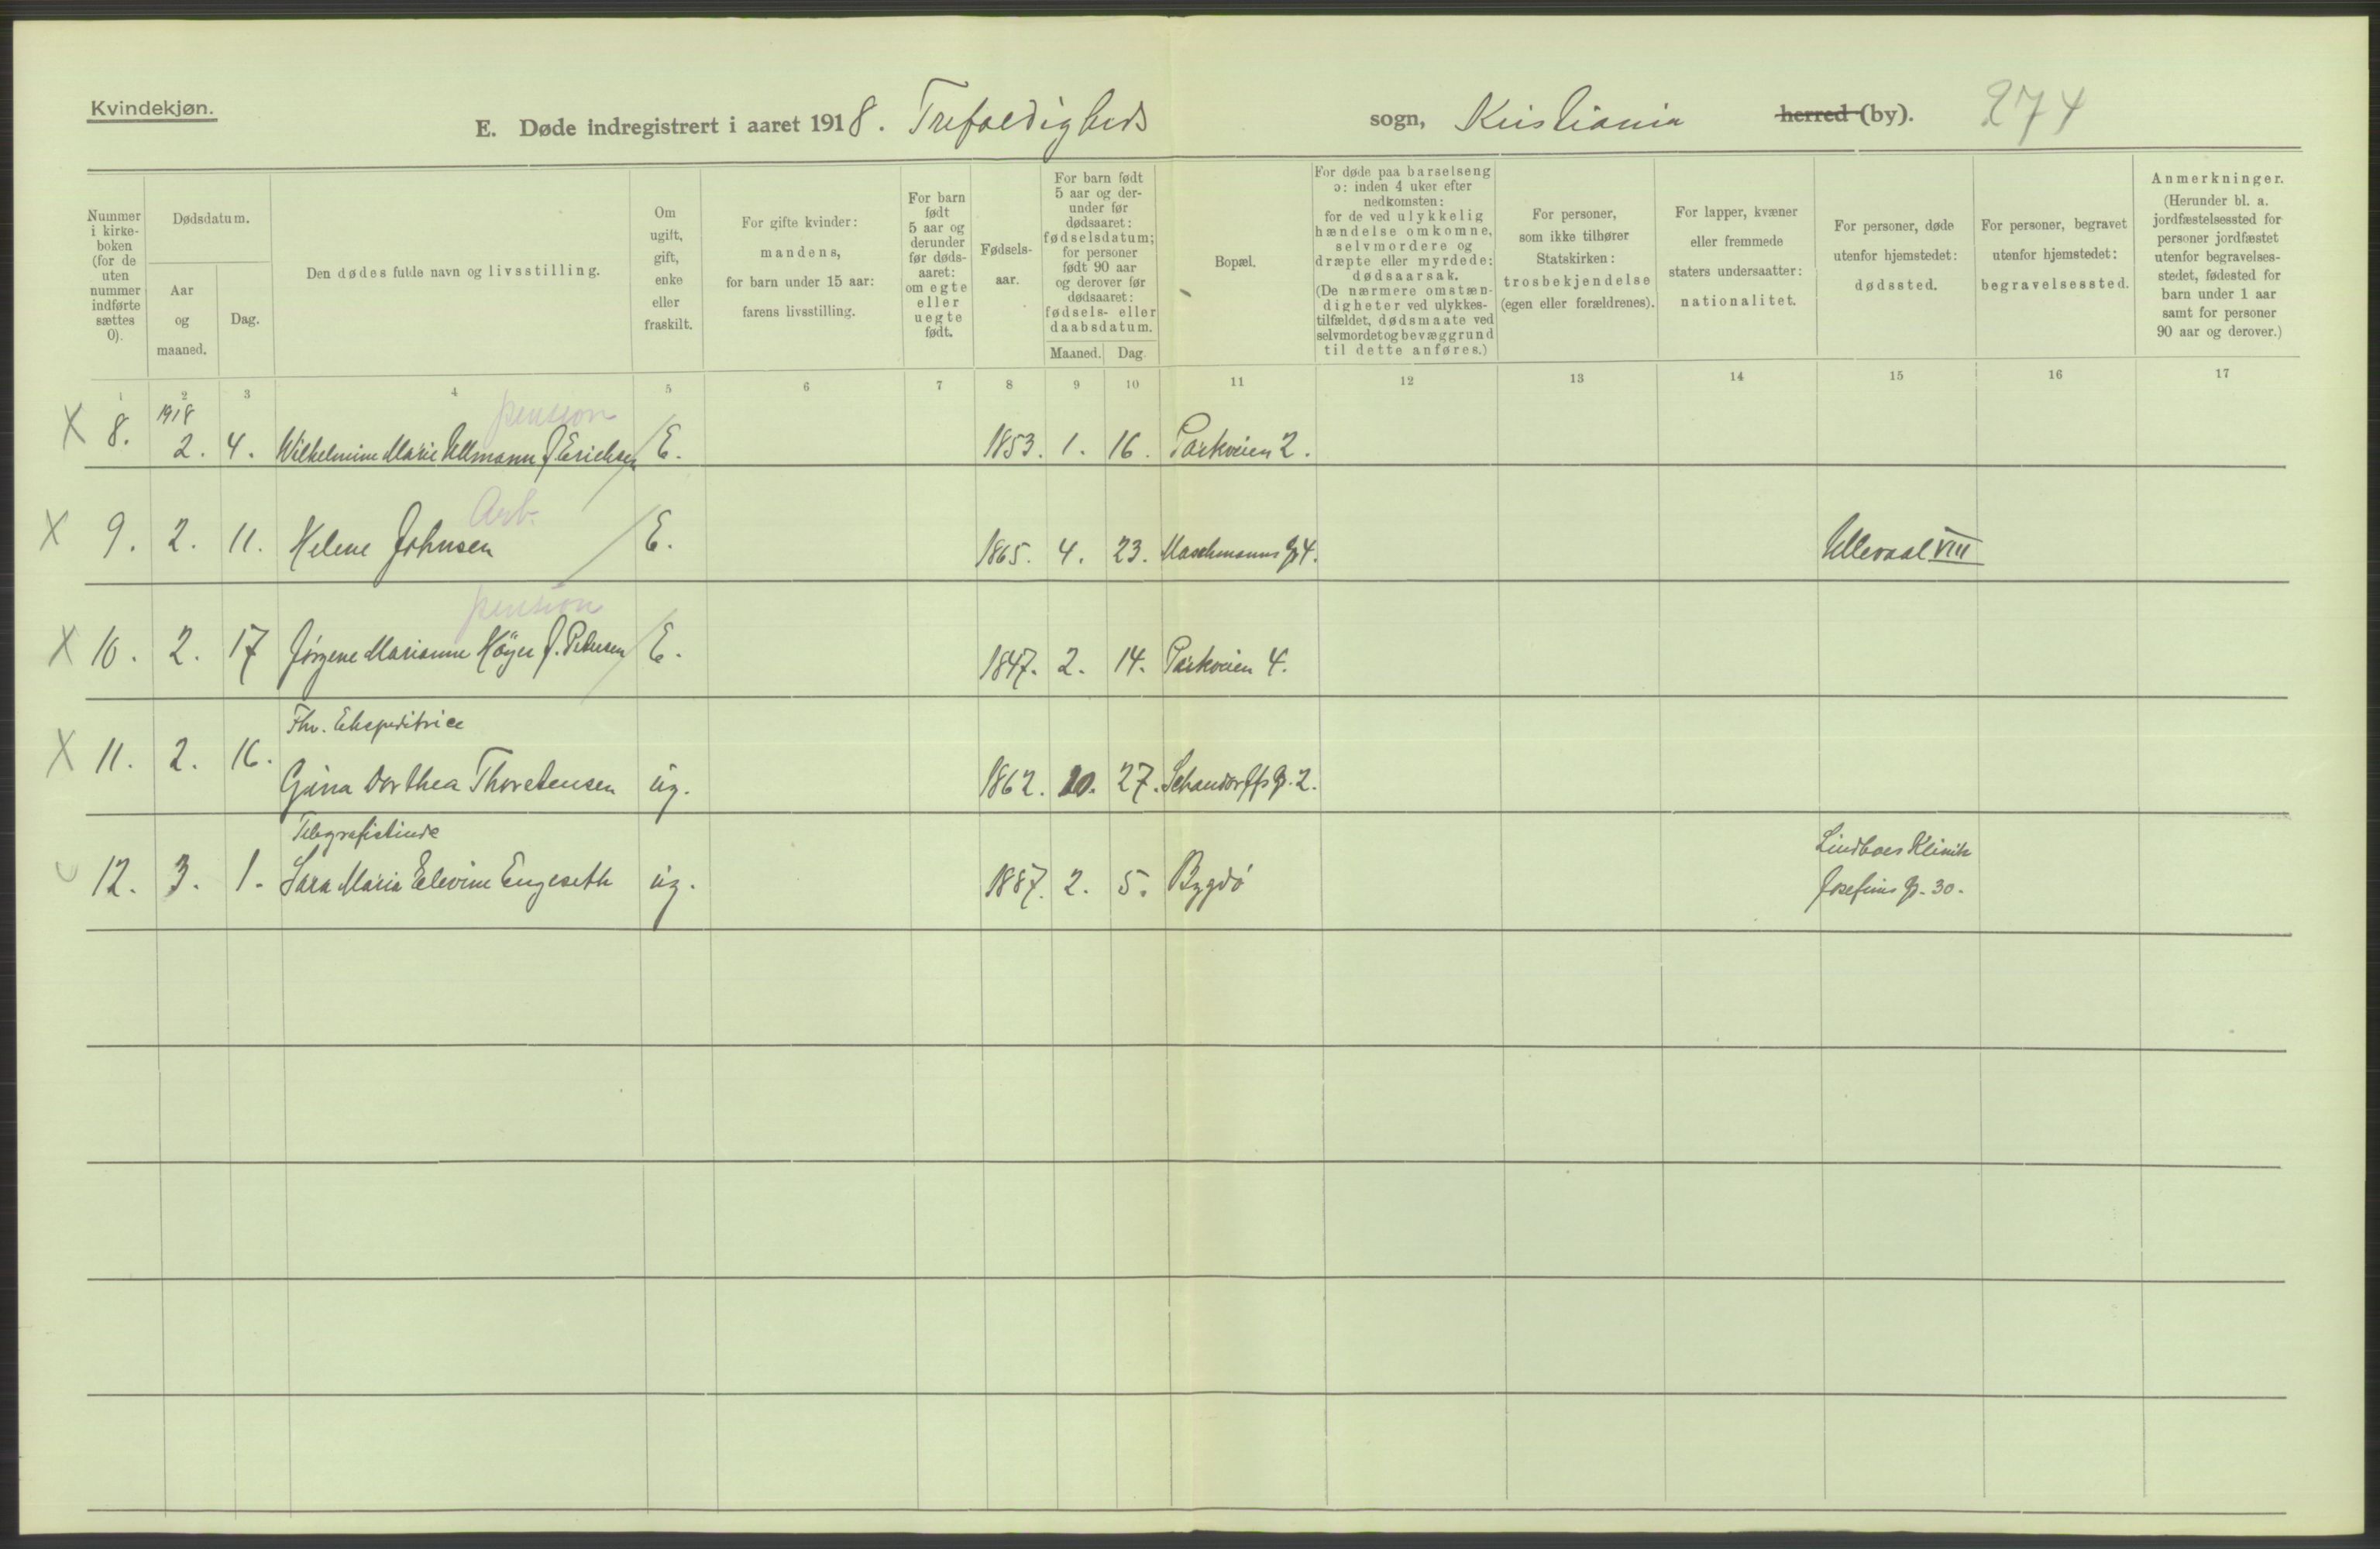 Kvindekjøn.
E. Døde indregistrert i aaret 1918. Trefoldigheds sogn, Kristiania herred (by). 274
Nummer i kirke-boken (for de uten nummer indførte sættes 0).
Dødsdatum.
Aar og maaned.
Dag.
Den dødes fulde navn og livsstilling.
Om ugift, gift, enke eller fraskilt.
For gifte kvinder: mandens, for barn under 15 aar: farens livsstilling.
For barn født 5 aar og derunder før døds-aaret: om egte eller uegte født.
Fødsels-aar.
For barn født 5 aar og der-under før dødsaaret: fødselsdatum; for personer født 90 aar og derover før dødsaaret: fødsels- eller daabsdatum.
Maaned. Dag.
Bopæl.
For døde paa barselseng ɔ: inden 4 uker efter nedkomsten: for de ved ulykkelig hændelse omkomne, selvmordere og dræpte eller myrdede: dødsaarsak. (De nærmere omstæn-digheter ved ulykkes-tilfældet, dødsmaate ved selvmordet og bevæggrund til dette anføres.)
For personer, som ikke tilhører Statskirken: trosbekjendelse (egen eller forældrenes).
For lapper, kvæner eller fremmede staters undersaatter: nationalitet.
For personer, døde utenfor hjemstedet: dødssted.
For personer, begravet utenfor hjemstedet: begravelsessted.
Anmerkninger. (Herunder bl. a. jordfæstelsessted for personer jordfæstet utenfor begravelses-stedet, fødested for barn under 1 aar samt for personer 90 aar og derover.)
1 2 3 4 5 6 7 8 9 10 11 12 13 14 15 16 17
1918 pension
X 8. 2. 4. Wilhelmine Marie Ullmann f. Erichsen E. 1853. 1. 16. Parkveien 2.
Arb.
X 9. 2. 11. Helene Johnsen E. 1865. 4. 23. Maschmanns g. 4. Ullevaal VIII
pension
X 10. 2. 17 Jørgene Marianne Høyer f. Petersen E. 1847. 2. 14. Parkveien 4.
Fhv. Ekspeditrice
X 11. 2. 16. Gina Dorthea Thorstensen ug. 1862. 10. 27. Schandorffs g. 2.
Telegrafistinde
12. 3. 1. Sara Maria Elevine Engeseth ug. 1887. 2. 5. Bygdø
Lindboes Klinik
Josefines g. 30.